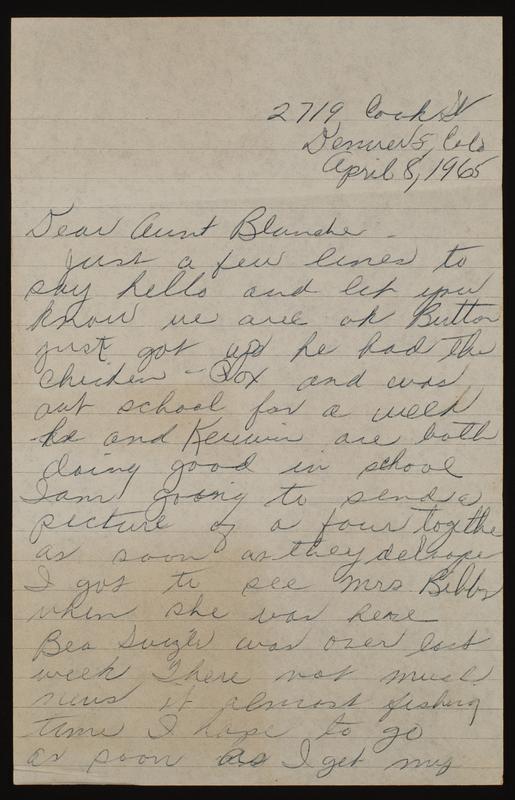 2719 Cook St
Denver 5, Colo
April 8, 1965
Dear Aunt Blanche -
Just a few lines to
say hello and let you
know we are ok Button
just got up he had the
chicken - Pox and was
out school for a week
he and Kerwin are both
doing good in school
I am going to send a
picture of a four togethe
as soon as they delvope
I got to see Mrs Bibbs
when she was here
Bea was over last
week There not much
news it almost fishing
time I hope to go
as soon as I get my